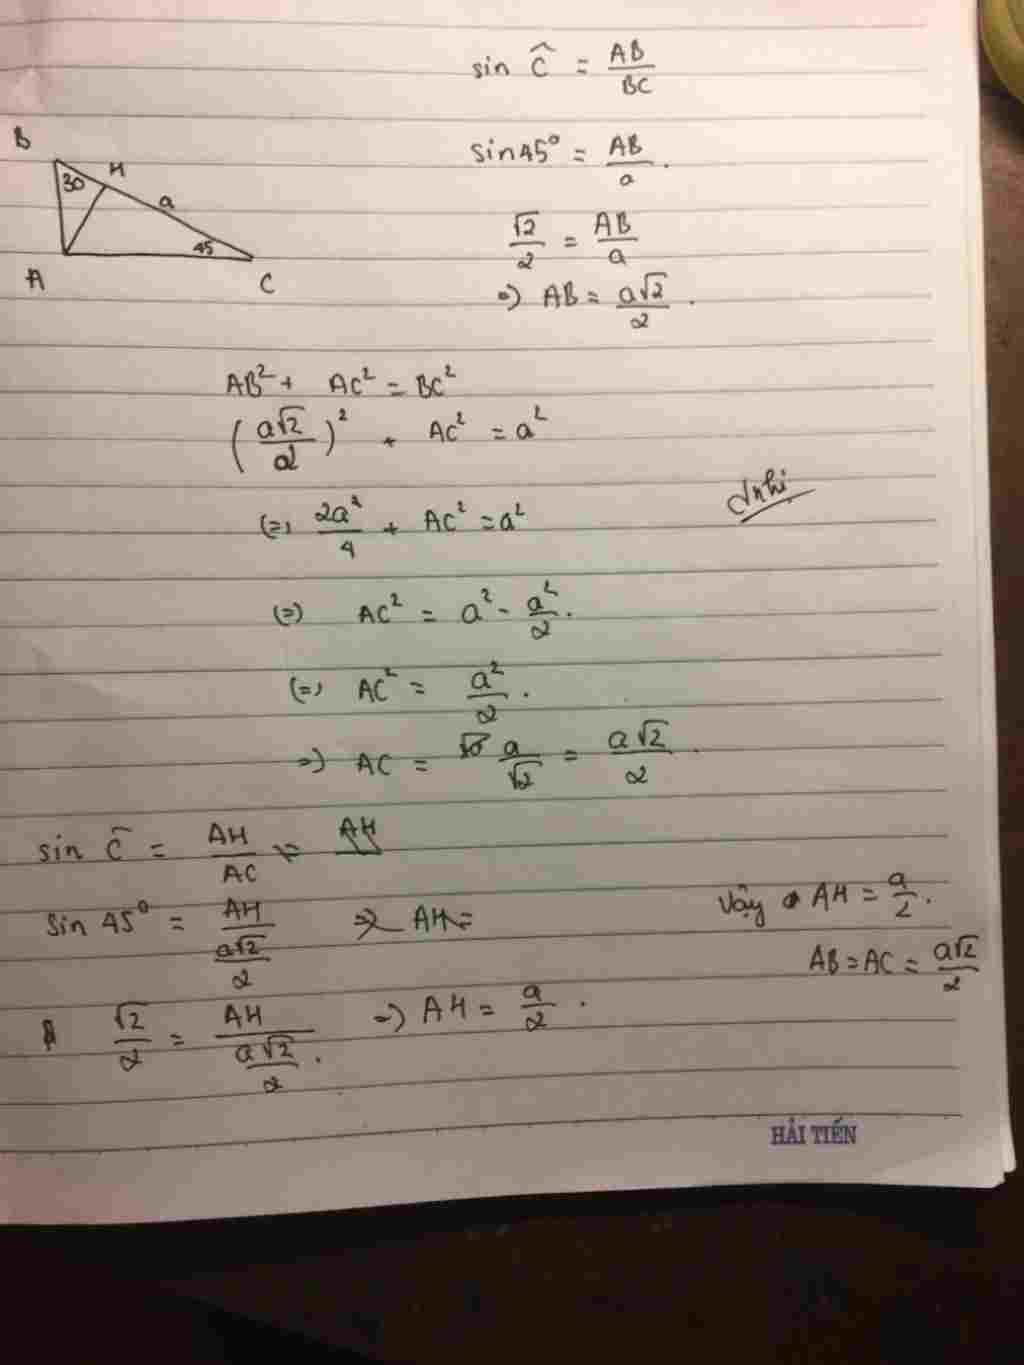 sin Ĉ = AB/BC
B
30
H
a
45
A
C
sin45° = AB/a .
√2/2 = AB/a
=) AB = a√2/2 .
AB² + AC² = BC²
(a√2/2)² + AC² = a²
(=) 2a²/4 + AC² = a²
(=) AC² = a² - a²/2 .
(=) AC² = a²/2 .
=) AC = a/√2 = a√2/2 .
sin Ĉ = AH/AC = AH
sin 45° = AH/(a√2/2) => AH =
√2/2 = AH/(a√2/2) . =) AH = a/2 .
Vậy AH = a/2 .
AB = AC = a√2/2
HẢI TIẾN